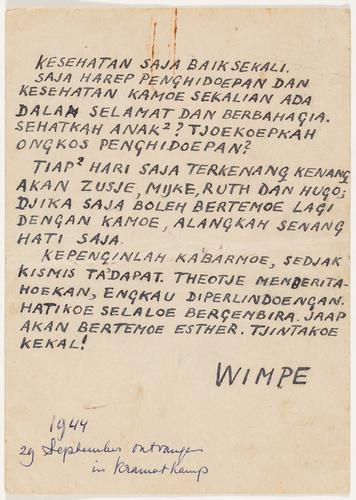 KESEHATAN SAJA BAIK SEKALI.
SAJA HAREP PENGHIDOEPAN DAN
KESEHATAN KAMOE SEKALIAN ADA
DALAM SELAMAT DAN BERBAHAGIA.
SEHATKAH ANAK²? TJOEKOEPKAH
ONGKOS PENGHIDOEPAN?
TIAP² HARI SAJA TERKENANG KENANG
AKAN ZUSJE, MIJKE, RUTH DAN HUGO;
DJIKA SAJA BOLEH BERTEMOE LAGI
DENGAN KAMOE, ALANGKAH SENANG
HATI SAJA.
KEPENGINLAH KABARMOE, SEDJAK
KISMIS TA'DAPAT. THEOTJE MEMBERITA-
HOEKAN, ENGKAU DIPERLINDOENGAN.
HATIKOE SELALOE BERGEMBIRA. JAAP
AKAN BERTEMOE ESTHER. TJINTAKOE
KEKAL!
WIMPE
1944
29 September ontvangen
in Kramatkamp